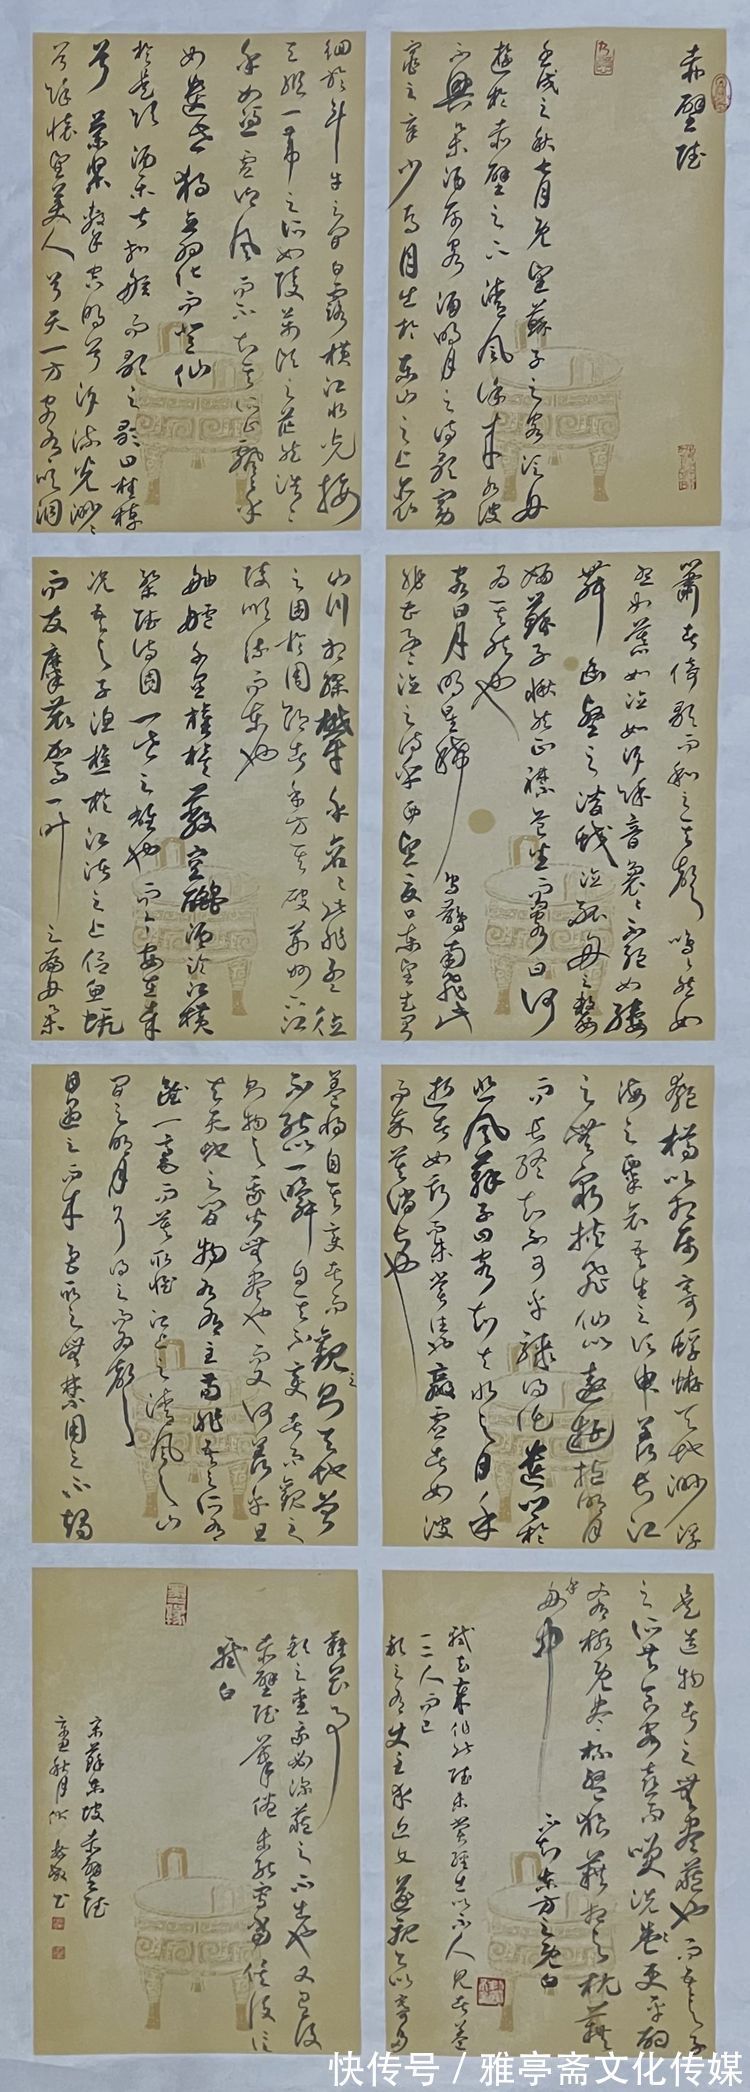 赤壁賦
壬戌之秋七月既望蘇子與客泛舟
遊於赤壁之下清風徐來水波
不興舉酒屬客誦明月之詩歌窈
窕之章少焉月出於東山之上徘
徊於斗牛之間白露橫江水光接
天縱一葦之所如陵萬頃之茫然浩浩
乎如馮虛御風而不知其所止飄飄乎
如遺世獨立羽化而登仙
於是飲酒樂甚扣舷而歌之歌曰桂棹
兮蘭槳擊空明兮泝流光渺渺
兮余懷望美人兮天一方客有吹洞
簫者倚歌而和之其聲嗚嗚然如
怨如慕如泣如訴餘音裊裊不絕如縷
舞幽壑之潛蛟泣孤舟之嫠
婦蘇子愀然正襟危坐而問客曰何
為其然也
客曰月明星稀烏鵲南飛此
非孟德之詩乎西望夏口東望武昌
山川相繆鬱乎蒼蒼此非孟德
之困於周郎者乎方其破荊州下江
陵順流而東也
舳艫千里旌旗蔽空釃酒臨江橫
槊賦詩固一世之雄也而今安在哉
況吾與子漁樵於江渚之上侶魚蝦
而友麋鹿駕一葉之扁舟舉
匏樽以相屬寄蜉蝣於天地渺浮
海之一粟哀吾生之須臾羨長江
之無窮挾飛仙以遨遊抱明月
而長終知不可乎驟得託遺響於
悲風蘇子曰客亦知夫水與月乎
逝者如斯而未嘗往也盈虛者如彼
而卒莫消長也
蓋將自其變者而觀之則天地曾
不能以一瞬自其不變者而觀之
則物與我皆無盡也而又何羨乎且
夫天地之間物各有主苟非吾之所有
雖一毫而莫取惟江上之清風與山
間之明月耳得之而為聲
目遇之而成色取之無禁用之不竭
是造物者之無盡藏也而吾與子
之所共食客喜而笑洗盞更酌
肴核既盡杯盤狼藉相與枕藉
乎舟中不知東方之既白
軾去歲作此賦未嘗輕出以示人見者蓋
一二人而已
欽之有使至求近文遂親書以寄多
難畏事
欽之愛我必深藏之不出也又有後
赤壁賦筆倦未能寫當俟後信
軾白
宋蘇東坡赤壁賦
秋月
書
快传号 / 雅亭斋文化传媒